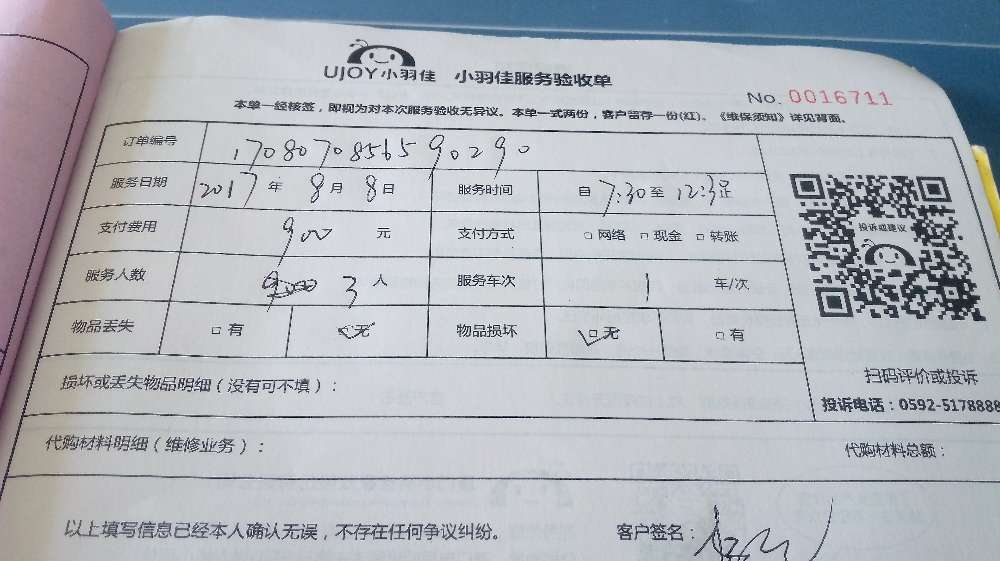 UJOY小羽佳 小羽佳服务验收单
No. 0016711
本单一经核签，即视为对本次服务验收无异议。本单一式两份，客户留存一份(红)。《维保须知》详见背面。
订单编号 1708070856590290
服务日期 2017 年 8 月 8 日 服务时间 自 7:30 至 12:30 止
支付费用 900 元 支付方式 □ 网络 □ 现金 □ 转账
投诉或建议
服务人数 3 人 服务车次 1 车/次
物品丢失 □ 有 ☑ 无 物品损坏 ☑ 无 □ 有
扫码评价或投诉
损坏或丢失物品明细（没有可不填）：
投诉电话：0592-5178888
代购材料明细（维修业务）： 代购材料总额：
以上填写信息已经本人确认无误，不存在任何争议纠纷。 客户签名：